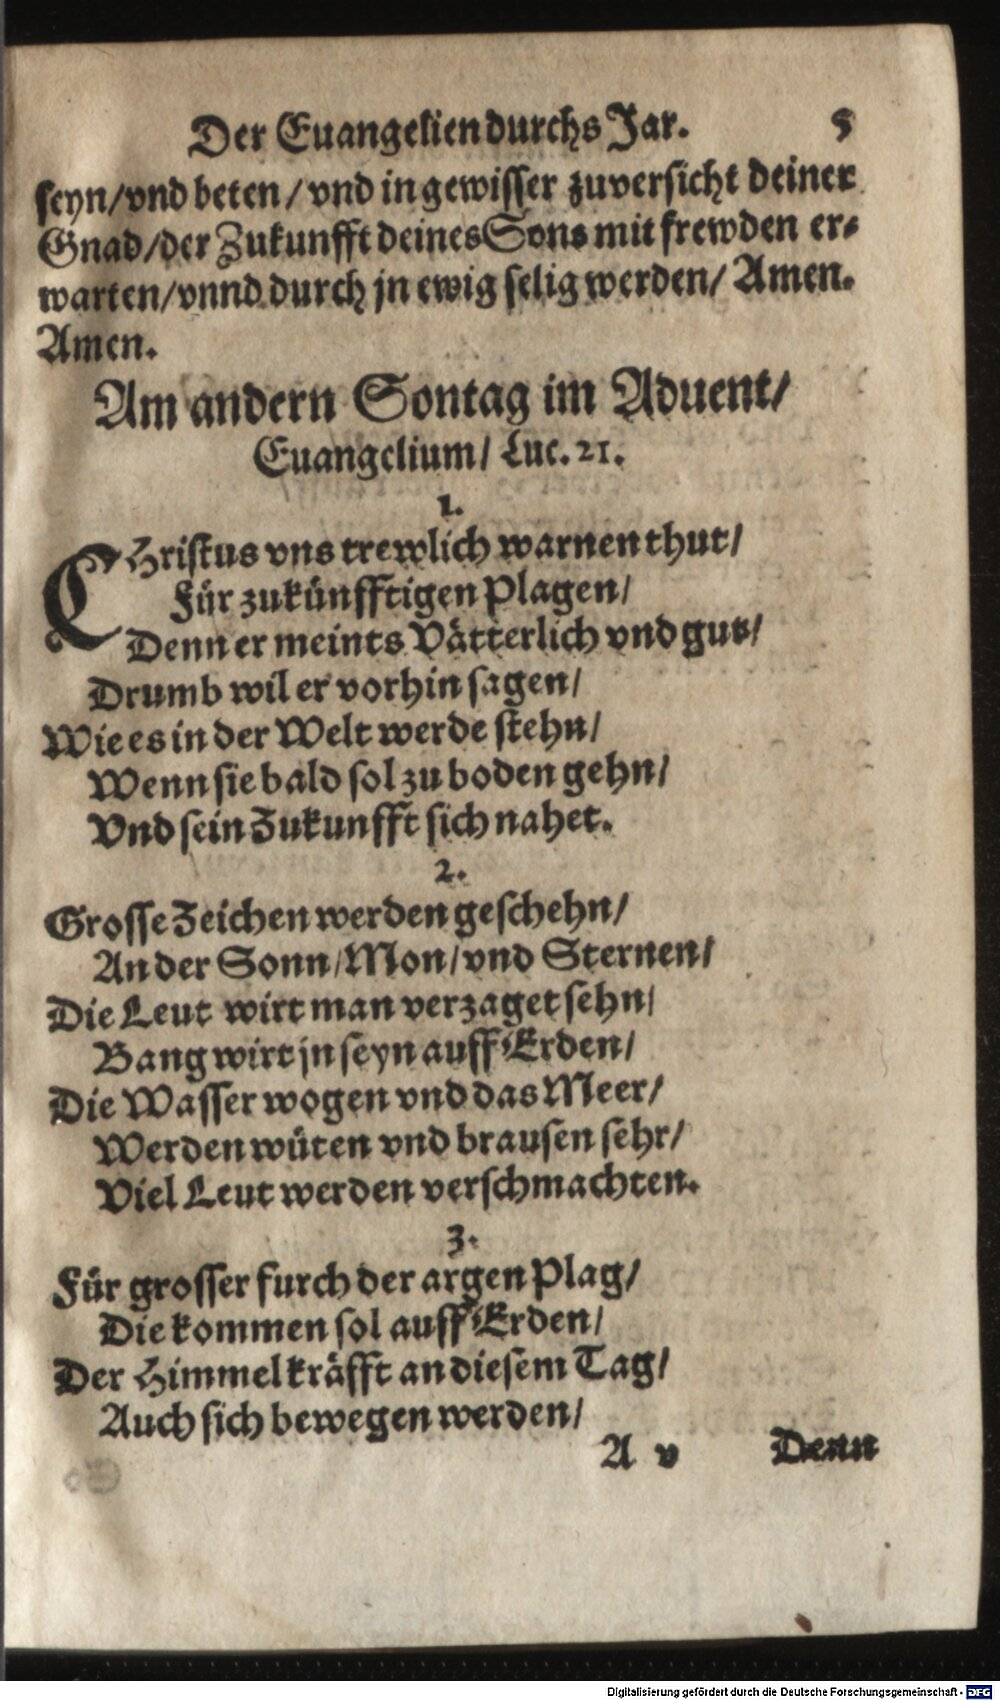 Der Euangelien durchs Jar. 5
seyn/vnd beten/vnd in gewisser zuversicht deiner
Gnad/der Zukunfft deines Sons mit frewden er⸗
warten/vnnd durch jn ewig selig werden/ Amen.
Amen.
Am andern Sontag im Aduent/
Euangelium/ Luc. 21.
1.
CHristus vns trewlich warnen thut/
Für zukünfftigen Plagen/
Denn er meints Vätterlich vnd gut/
Drumb wil er vorhin sagen/
Wie es in der Welt werde stehn/
Wenn sie bald sol zu boden gehn/
Vnd sein Zukunfft sich nahet.
2.
Grosse Zeichen werden geschehn/
An der Sonn/Mon/vnd Sternen/
Die Leut wirt man verzaget sehn/
Bang wirt jn seyn auff Erden/
Die Wasser wogen vnd das Meer/
Werden wüten vnd brausen sehr/
Viel Leut werden verschmachten.
3.
Für grosser furch der argen Plag/
Die kommen sol auff Erden/
Der Himmel kräfft an diesem Tag/
Auch sich bewegen werden/
A v Denn
Digitalisierung gefördert durch die Deutsche Forschungsgemeinschaft - DFG